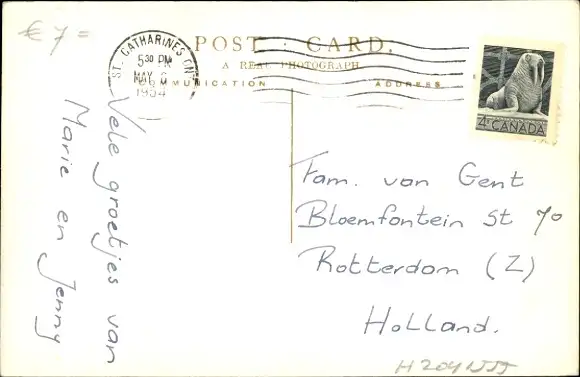 € 7=
ST. CATHARINES ONT
5 30 PM
MAY 6
1954
POST CARD.
A REAL PHOTOGRAPH
COMMUNICATION
ADDRESS
4¢ CANADA
Vele groetjes van
Marie en Jenny
Fam. van Gent
Bloemfontein st 70
Rotterdam (Z)
Holland.